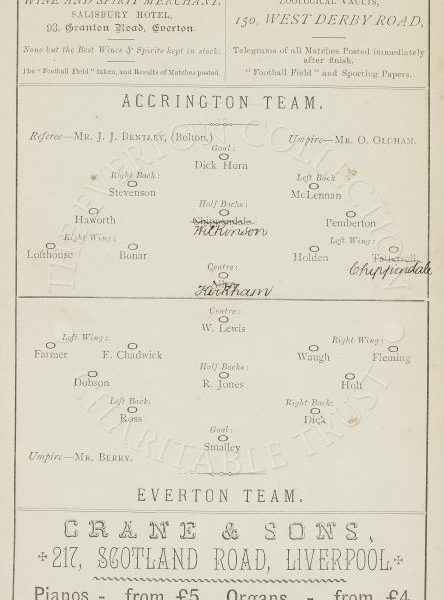 WINE AND SPIRIT MERCHANT,
SALISBURY HOTEL,
93, Granton Road, Everton.
None but the Best Wines & Spirits kept in stock.
The "Football Field" taken, and Results of Matches posted.
ZOOLOGICAL VAULTS,
150, WEST DERBY ROAD,
Telegrams of all Matches Posted immediately
after finish.
"Football Field" and Sporting Papers.
ACCRINGTON TEAM.
Referee—MR. J. J. BENTLEY, (Bolton.)
Umpire—MR. O. OLDHAM.
Goal:
Dick Horn
Right Back:
Stevenson
Left Back
McLennan
Half Backs:
Haworth
Chippendale
Wilkinson
Pemberton
Right Wing:
Left Wing:
Lofthouse
Bonar
Holden
Tattersall
Chippendale
Centre:
Kirkham
Centre:
W. Lewis
Left Wing:
Right Wing:
Farmer
E. Chadwick
Waugh
Fleming
Half Backs:
Dobson
R. Jones
Holt
Left Back:
Ross
Right Back:
Dick
Goal:
Smalley
Umpire—MR. BERRY.
EVERTON TEAM.
CRANE & SONS,
217, SCOTLAND ROAD, LIVERPOOL.
Pianos - from £5. Organs - from £4
THE EVERTON COLLECTION
CHARITABLE TRUST